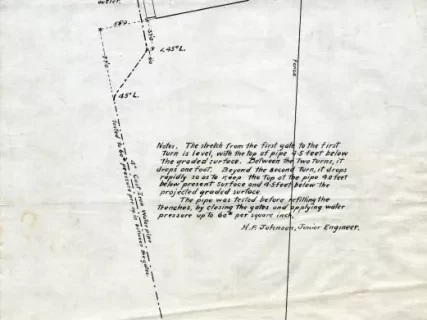 water.
<45°L.
45°L.
Fence
Notes. The stretch from the first gate to the first
Turn is level, with the top of pipe 4.5 feet below
the graded surface. Between the two turns, it
drops one foot. Beyond the second Turn, it drops
rapidly so as to keep the top of the pipe 4.0 feet
below present surface and 4.5 feet below the
projected graded surface.
The pipe was tested before refilling the
trenches, by closing the gates and applying water
pressure up to 60# per square inch.
H.P. Johnson, Junior Engineer.